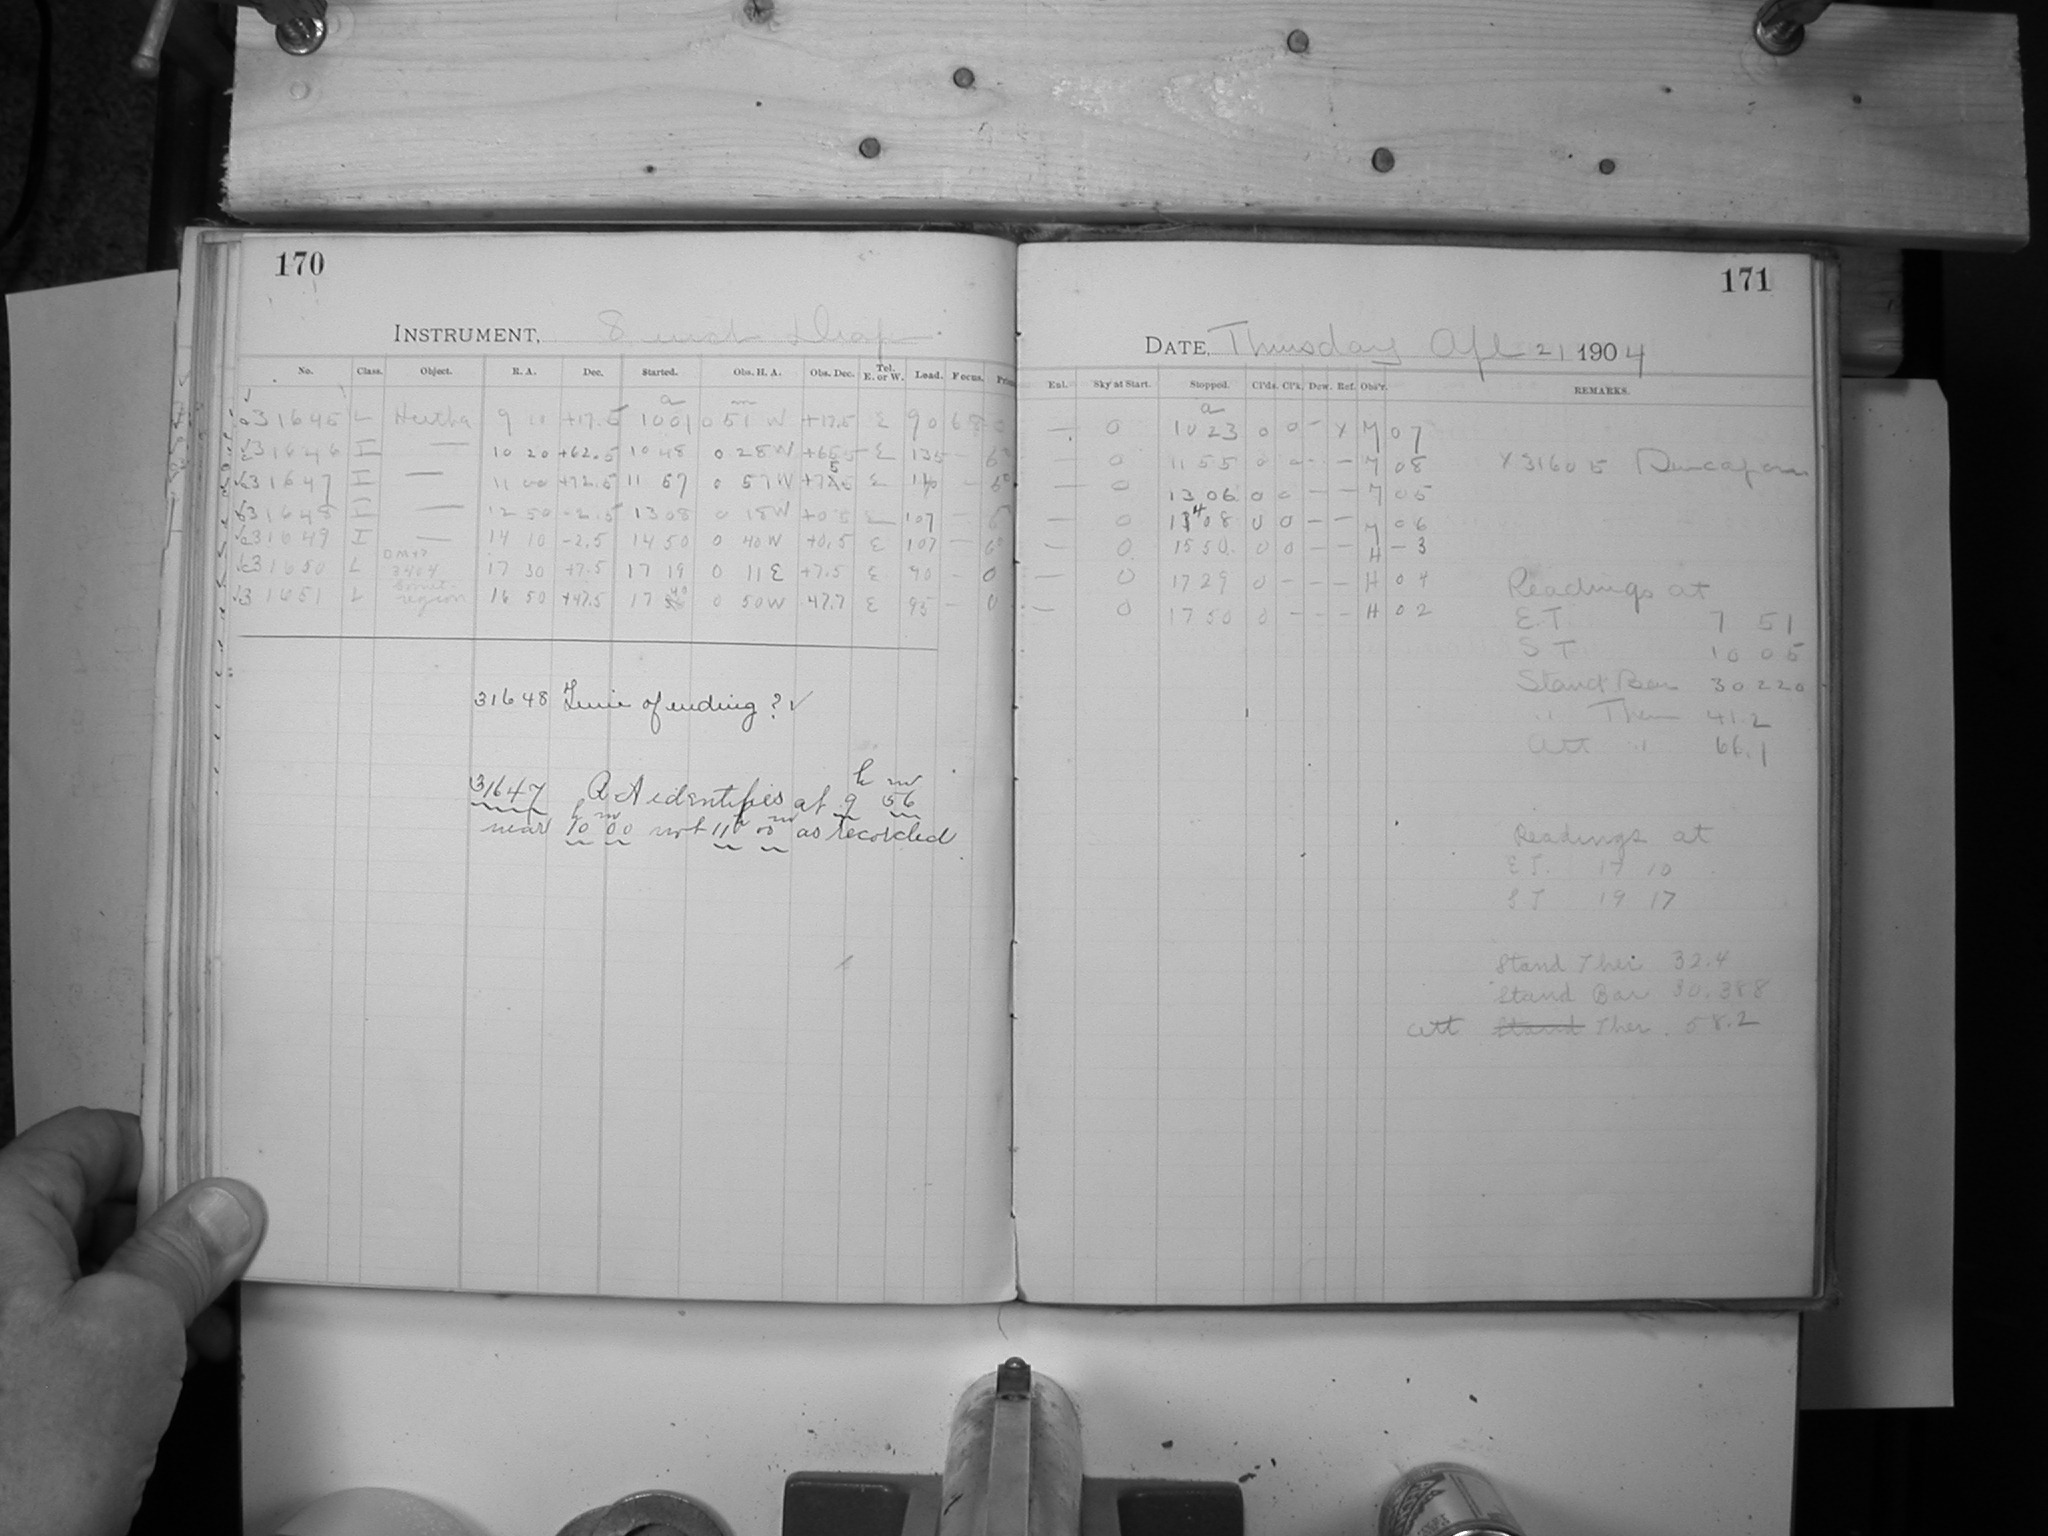 170
INSTRUMENT, 8 inch Drap
No. Class. Object. R. A. Dec. Started. Obs. H. A. Obs. Dec. Tel. E. or W. Load. Focus.
a m
31645 L Hertha 9 10 +17.5 1001 0 51 W +17.5 E 90 68 0
31646 I — 10 20 +62.5 10 48 0 28 W E 135 —
31647 I — 11 00 +72.5 11 57 0 57 W E —
31648 I — 12 50 -2.5 1308 0 18 W +0.5 E 107 —
31649 I — 14 10 -2.5 14 50 0 40 W +0.5 E 107 —
31650 L 17 30 +7.5 17 19 0 11 E +7.5 E 90 — 0
31651 L region 16 50 +47.5 17 40 0 50 W 47.7 E 95 — 0
31648 Time of ending? ✓
31647 A identifies at 9h 56m
near 10h 00m not 11h 00m as recorded
171
DATE, Thursday Apl 21 1904
Enl. Sky at Start. Stopped. Cl'ds. Cl'k. Dew. Ref. Obs'r. REMARKS.
a
— 0 10 23 0 0 - x M 07
— 0 11 55 0 0 - - M 08 x 31605
— 0 13 06 0 0 - - M 05
— 0 1408 0 0 - - M 06
— 0 15 50 0 0 - - H - 3
— 0 17 29 0 - - - H 04
— 0 17 50 0 - - - H 02
Readings at
E.T. 7 51
S T 10 05
Stand Bar 30 220
" Ther 41.2
Att " 66.1
Readings at
E T. 17 10
S T 19 17
Stand Ther 32.4
Stand Bar 30.388
Att Stand Ther. 58.2